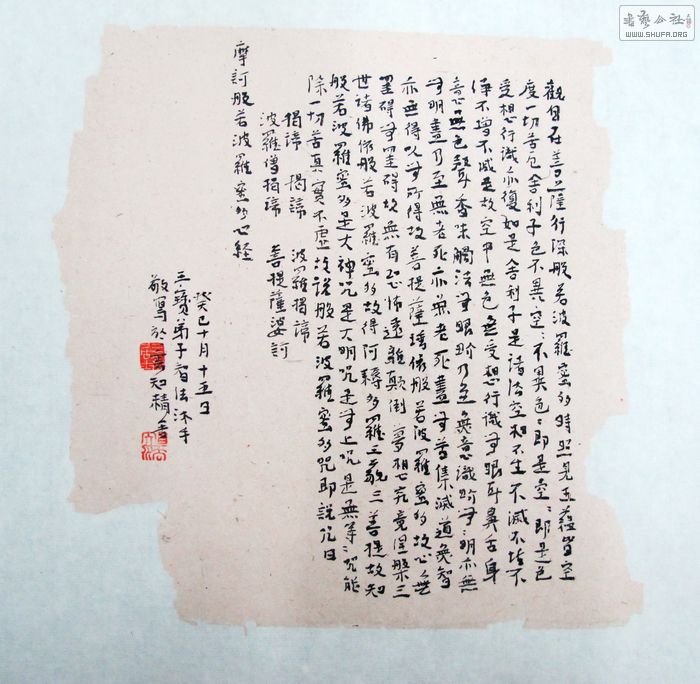 觀自在菩薩行深般若波羅蜜多時照見五蘊皆空
度一切苦厄舍利子色不異空〻不異色〻即是空〻即是色
受想行識亦復如是舍利子是諸法空相不生不滅不垢不
淨不增不減是故空中無色無受想行識無眼耳鼻舌身
意無色聲香味觸法無眼界乃至無意識界無〻明亦無
無明盡乃至無老死亦無老死盡無苦集滅道無智
亦無得以無所得故菩提薩埵依般若波羅蜜多故心無
罣碍無罣碍故無有恐怖遠離顛倒夢想究竟涅槃三
世諸佛依般若波羅蜜多故得阿耨多羅三藐三菩提故知
般若波羅蜜多是大神咒是大明咒是無上咒是無等〻咒能
除一切苦真實不虛故說般若波羅蜜多咒即說咒曰
揭諦 揭諦 波羅揭諦
波羅僧揭諦 菩提薩婆訶
摩訶般若波羅蜜多心經
癸巳十月十五日
三寶弟子智法沐手
敬寫於知精舍
书艺公社
WWW.SHUFA.ORG